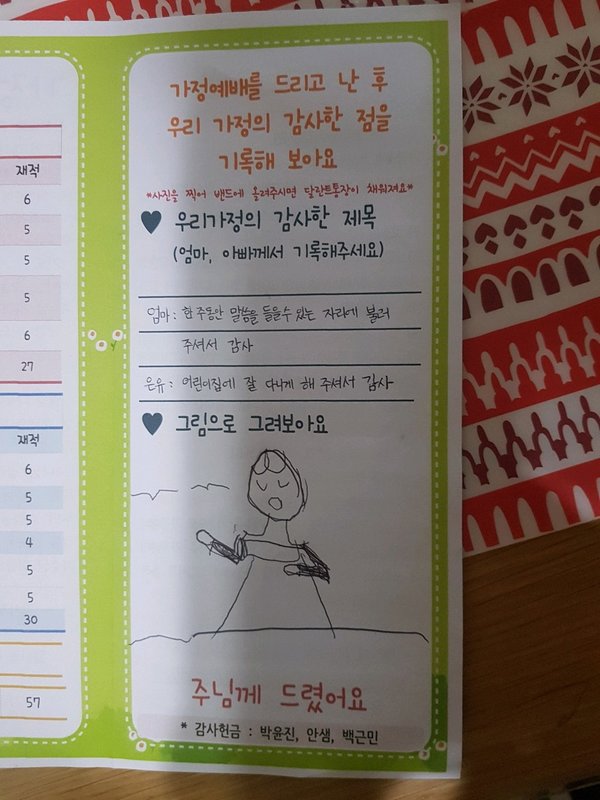 재적
6
5
5
5
6
27
재적
6
5
5
4
5
5
30
57
가정예배를 드리고 난 후
우리 가정의 감사한 점을
기록해 보아요
*사진을 찍어 밴드에 올려주시면 달란트통장이 채워져요*
♥ 우리가정의 감사한 제목
(엄마, 아빠께서 기록해주세요)
엄마 : 한 주동안 말씀을 들을수 있는 자리에 불러
주셔서 감사
은유 : 어린이집에 잘 다니게 해 주셔서 감사
♥ 그림으로 그려보아요
주님께 드렸어요
* 감사헌금 : 박윤진, 안샘, 백근민